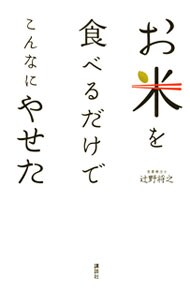 お米を
食べるだけで
こんなにやせた
辻野将之
講談社